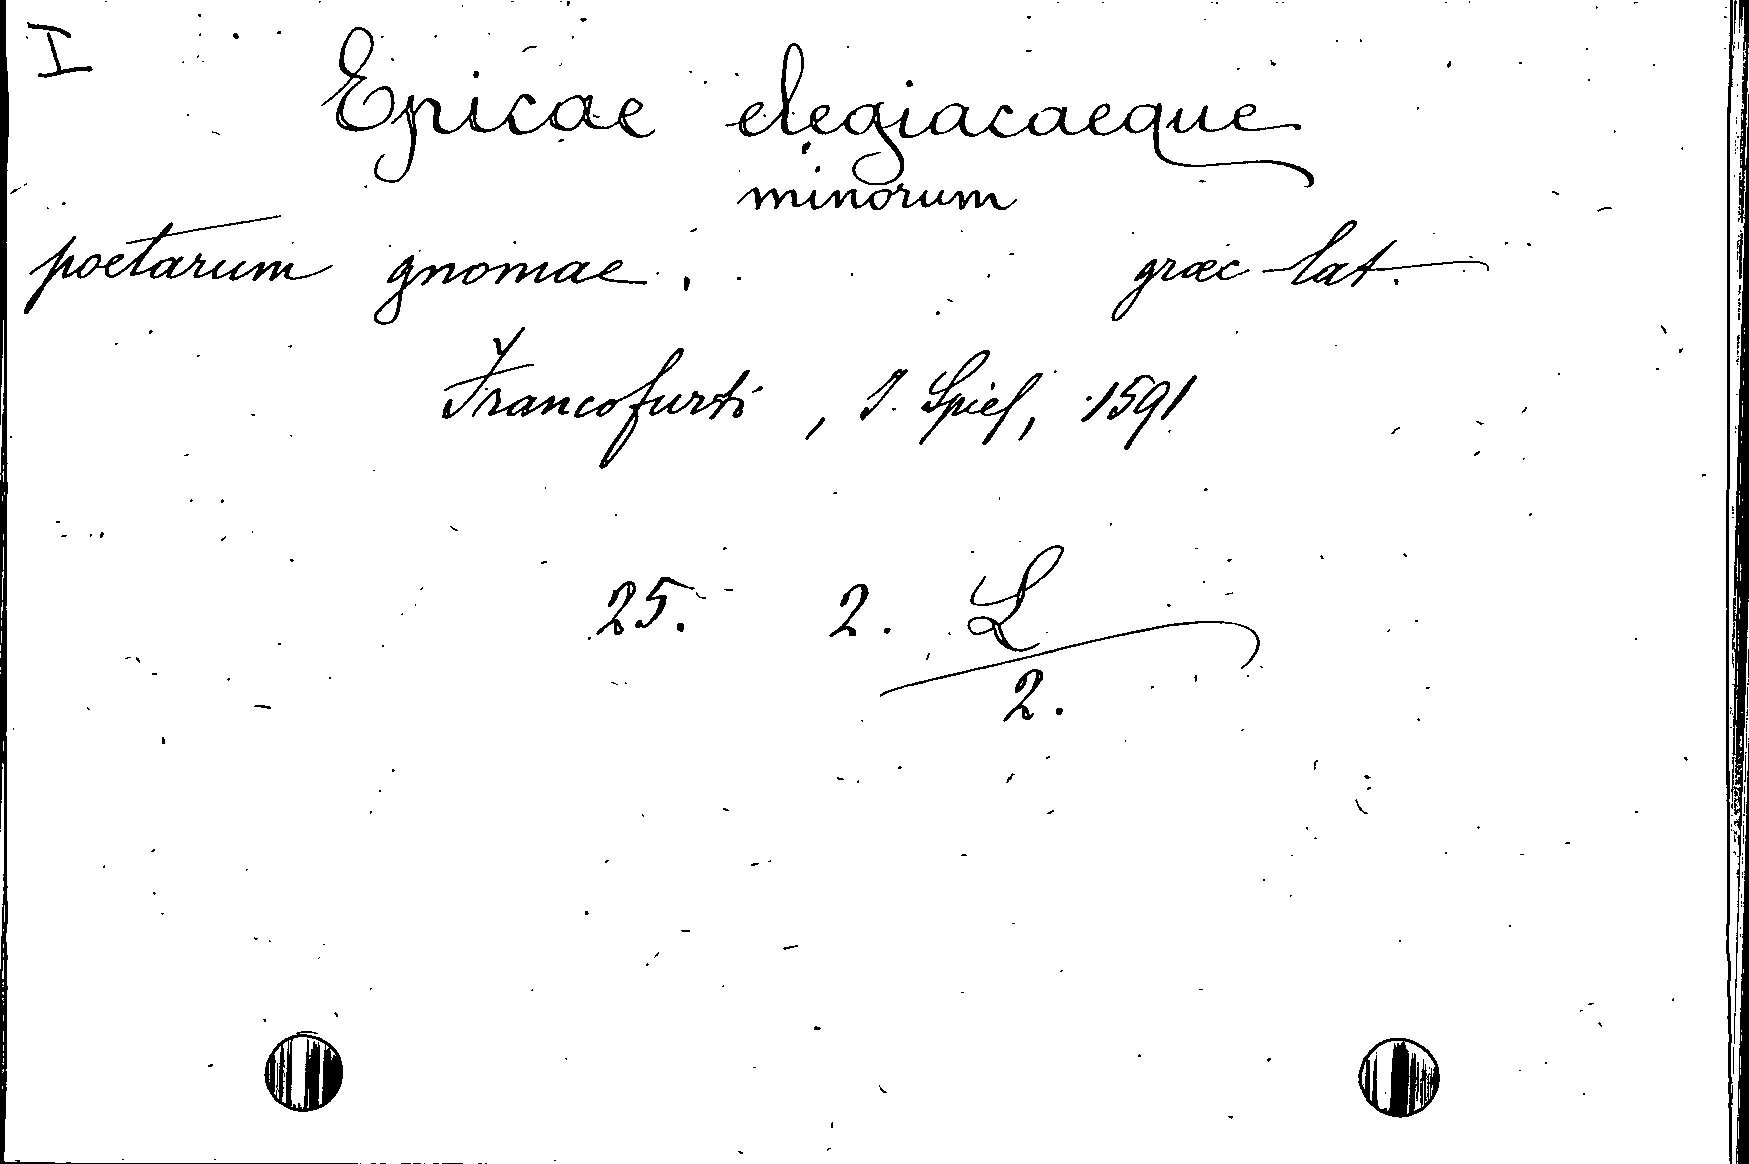 I
Epicae elegiacaeque
minorum
poetarum gnomae, græc-lat.
Francofurti, J. Spies, 1591
25. 2. L
2.